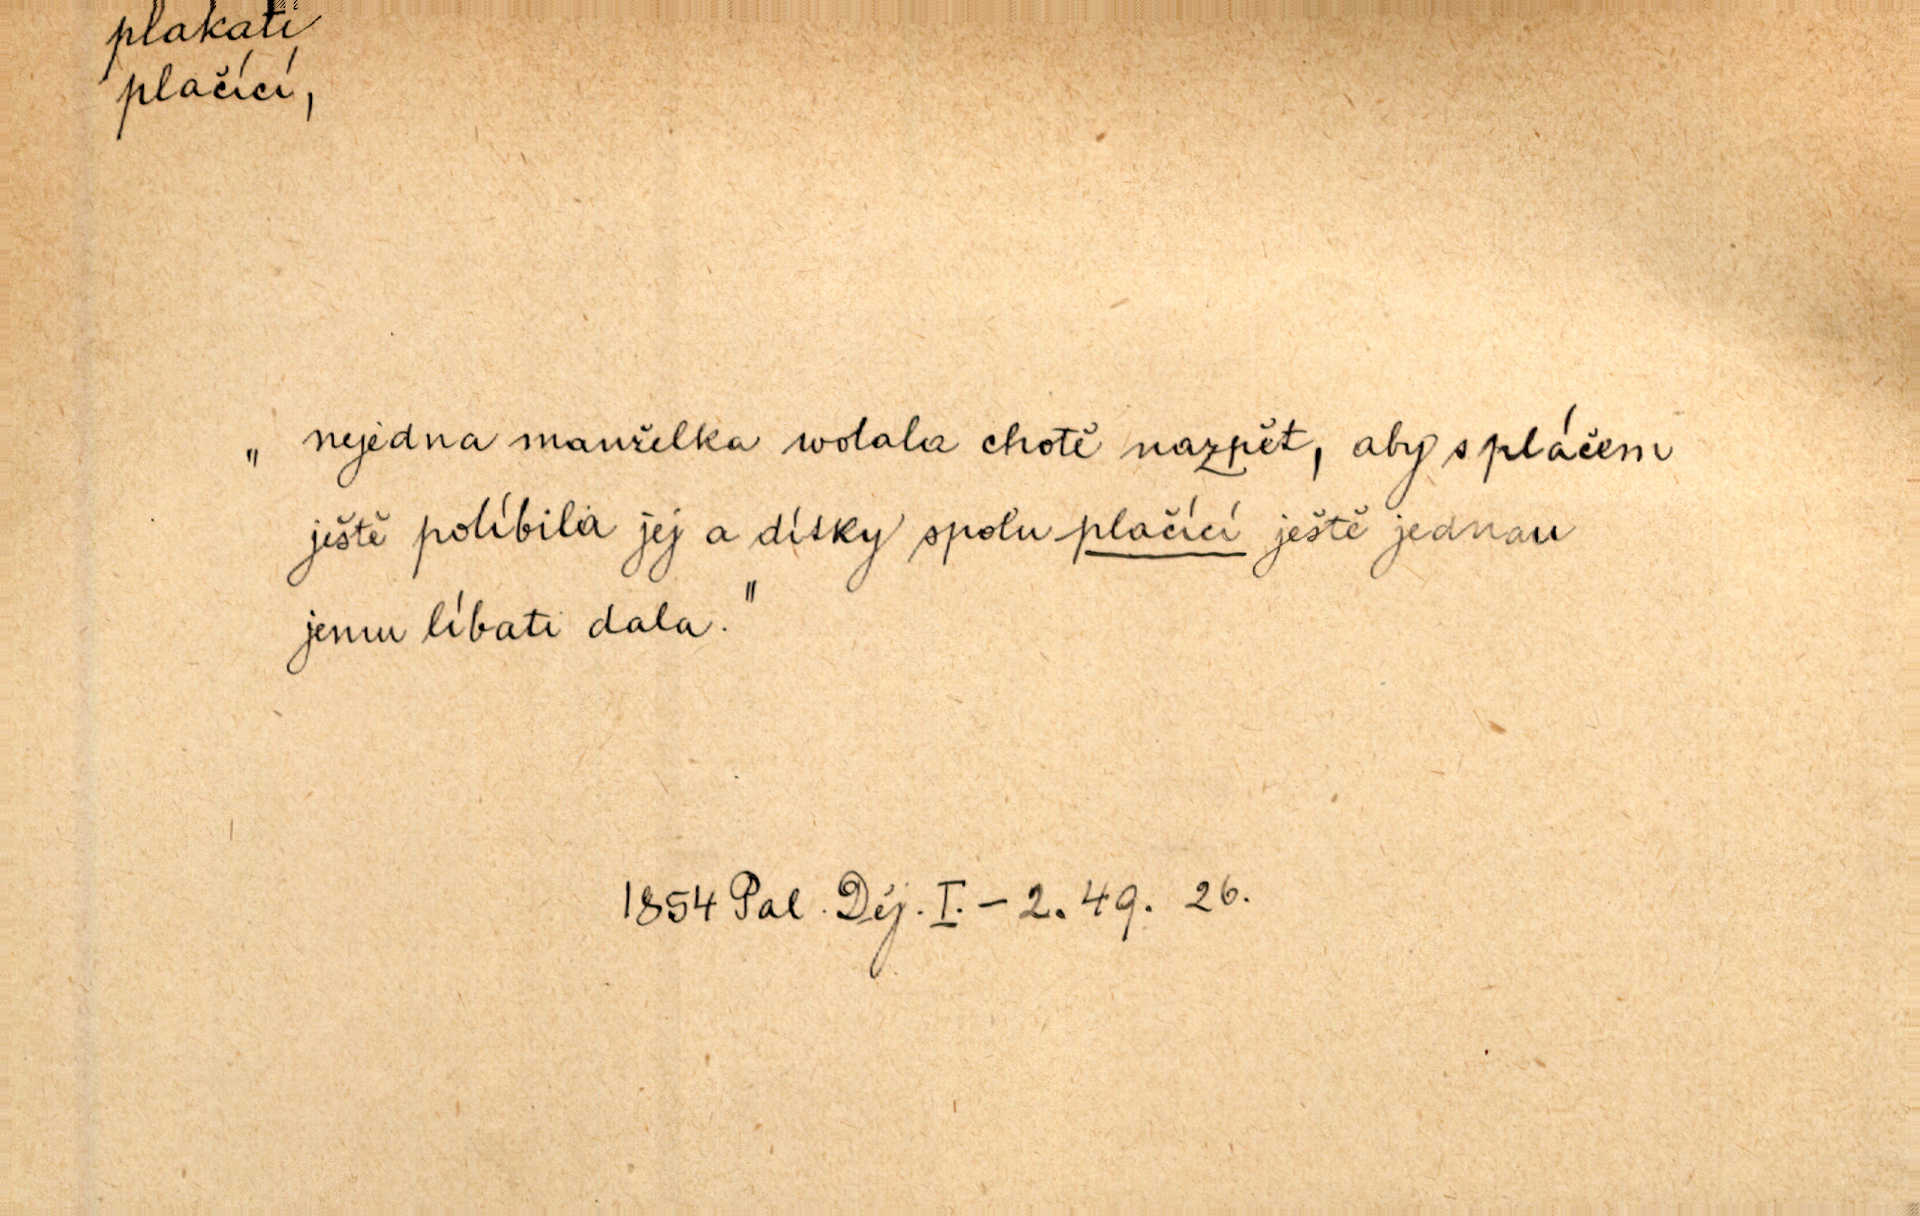 plakati
plačící,
„ nejedna manželka wolala chotě nazpět, aby s pláčem
ještě políbila jej a dítky spolu plačící ještě jednau
jemu líbati dala."
1854 Pal. Děj. I. - 2. 49. 26.